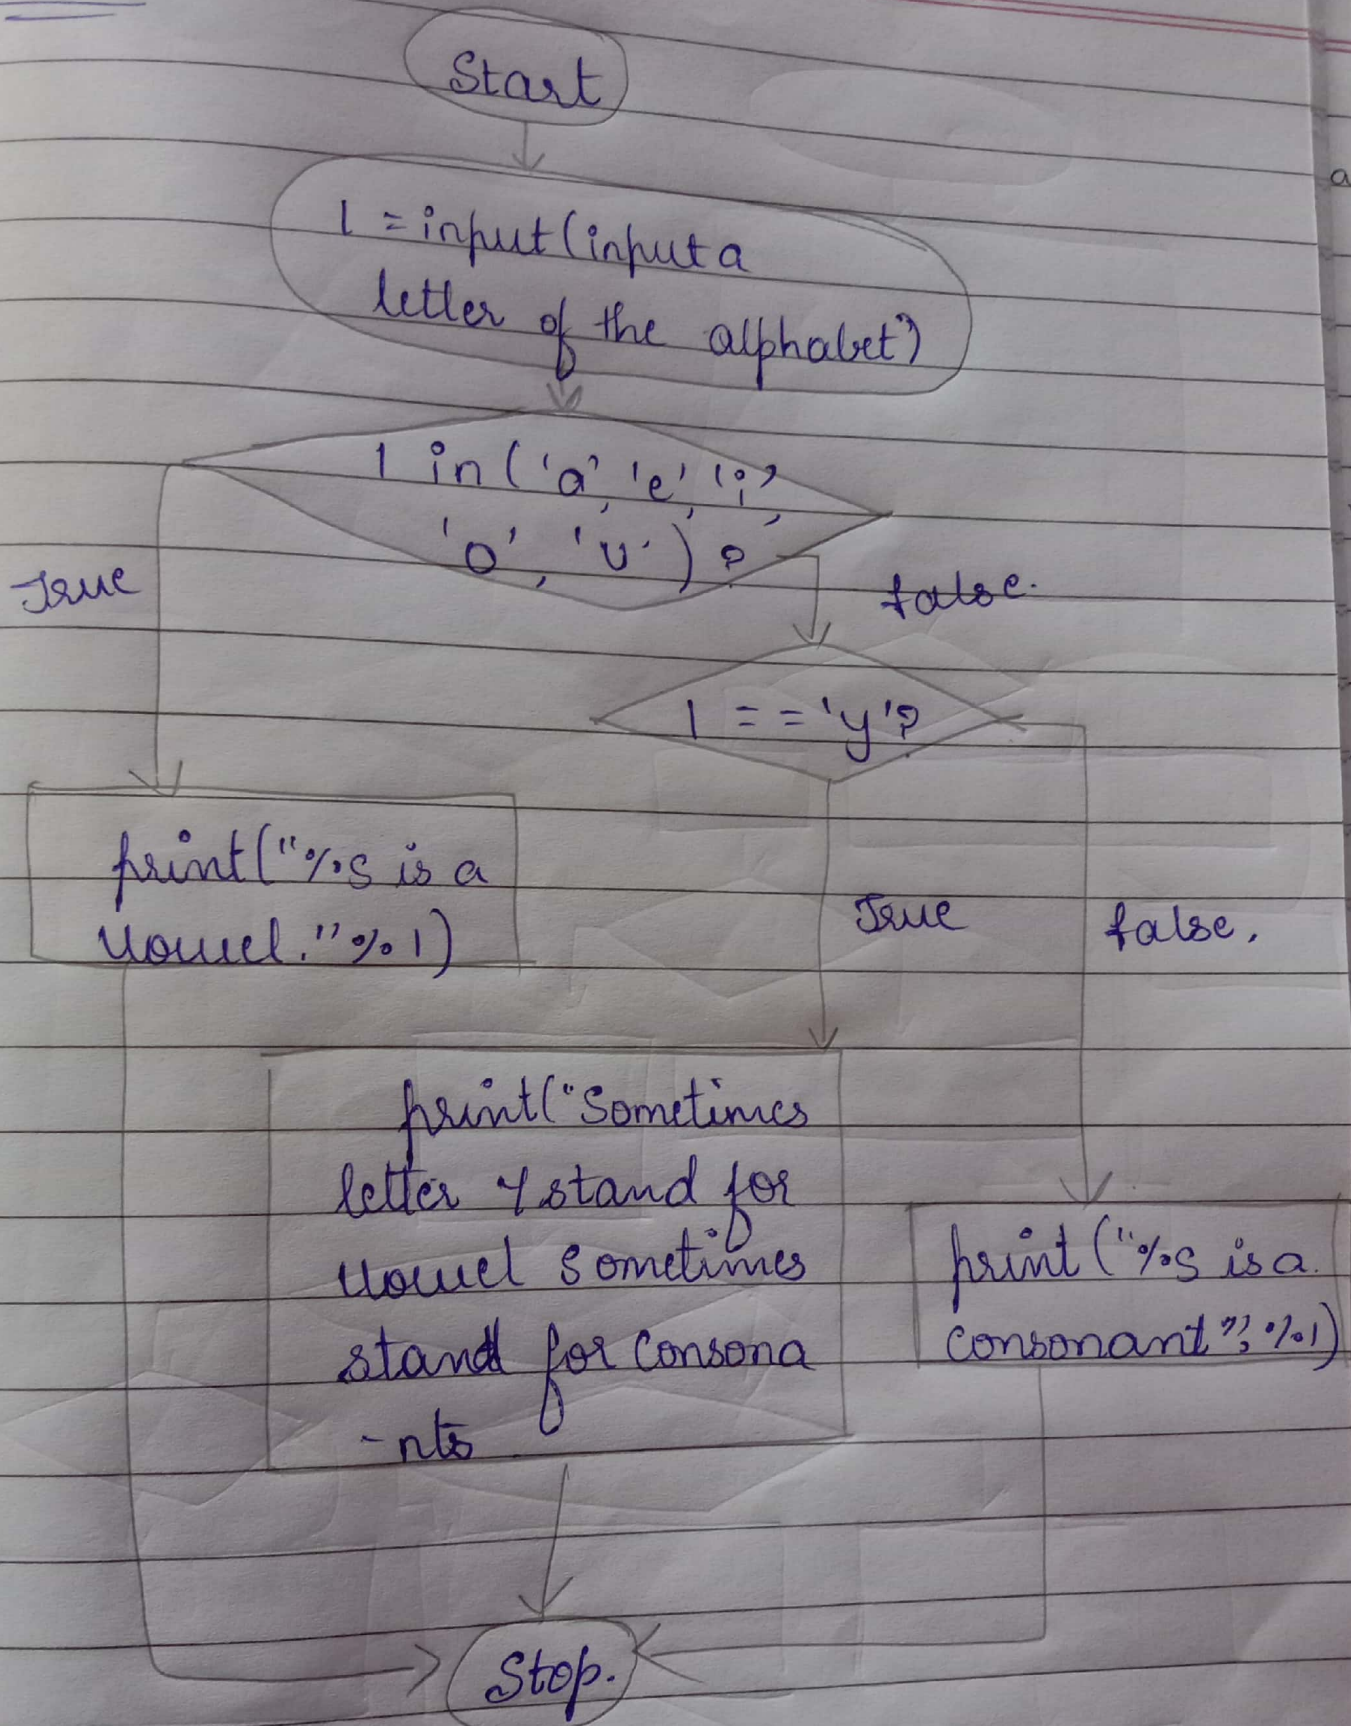 Start
l = input(input a
letter of the alphabet")
l in ('a', 'e', 'i',
'o', 'u') ?
True
false.
l == 'y'?
print("%s is a
vowel." % l)
True
false.
print("Sometimes
letter y stand for
vowel sometimes
stand for consona
-nts
print ("%s is a.
consonant", % l)
Stop.
a